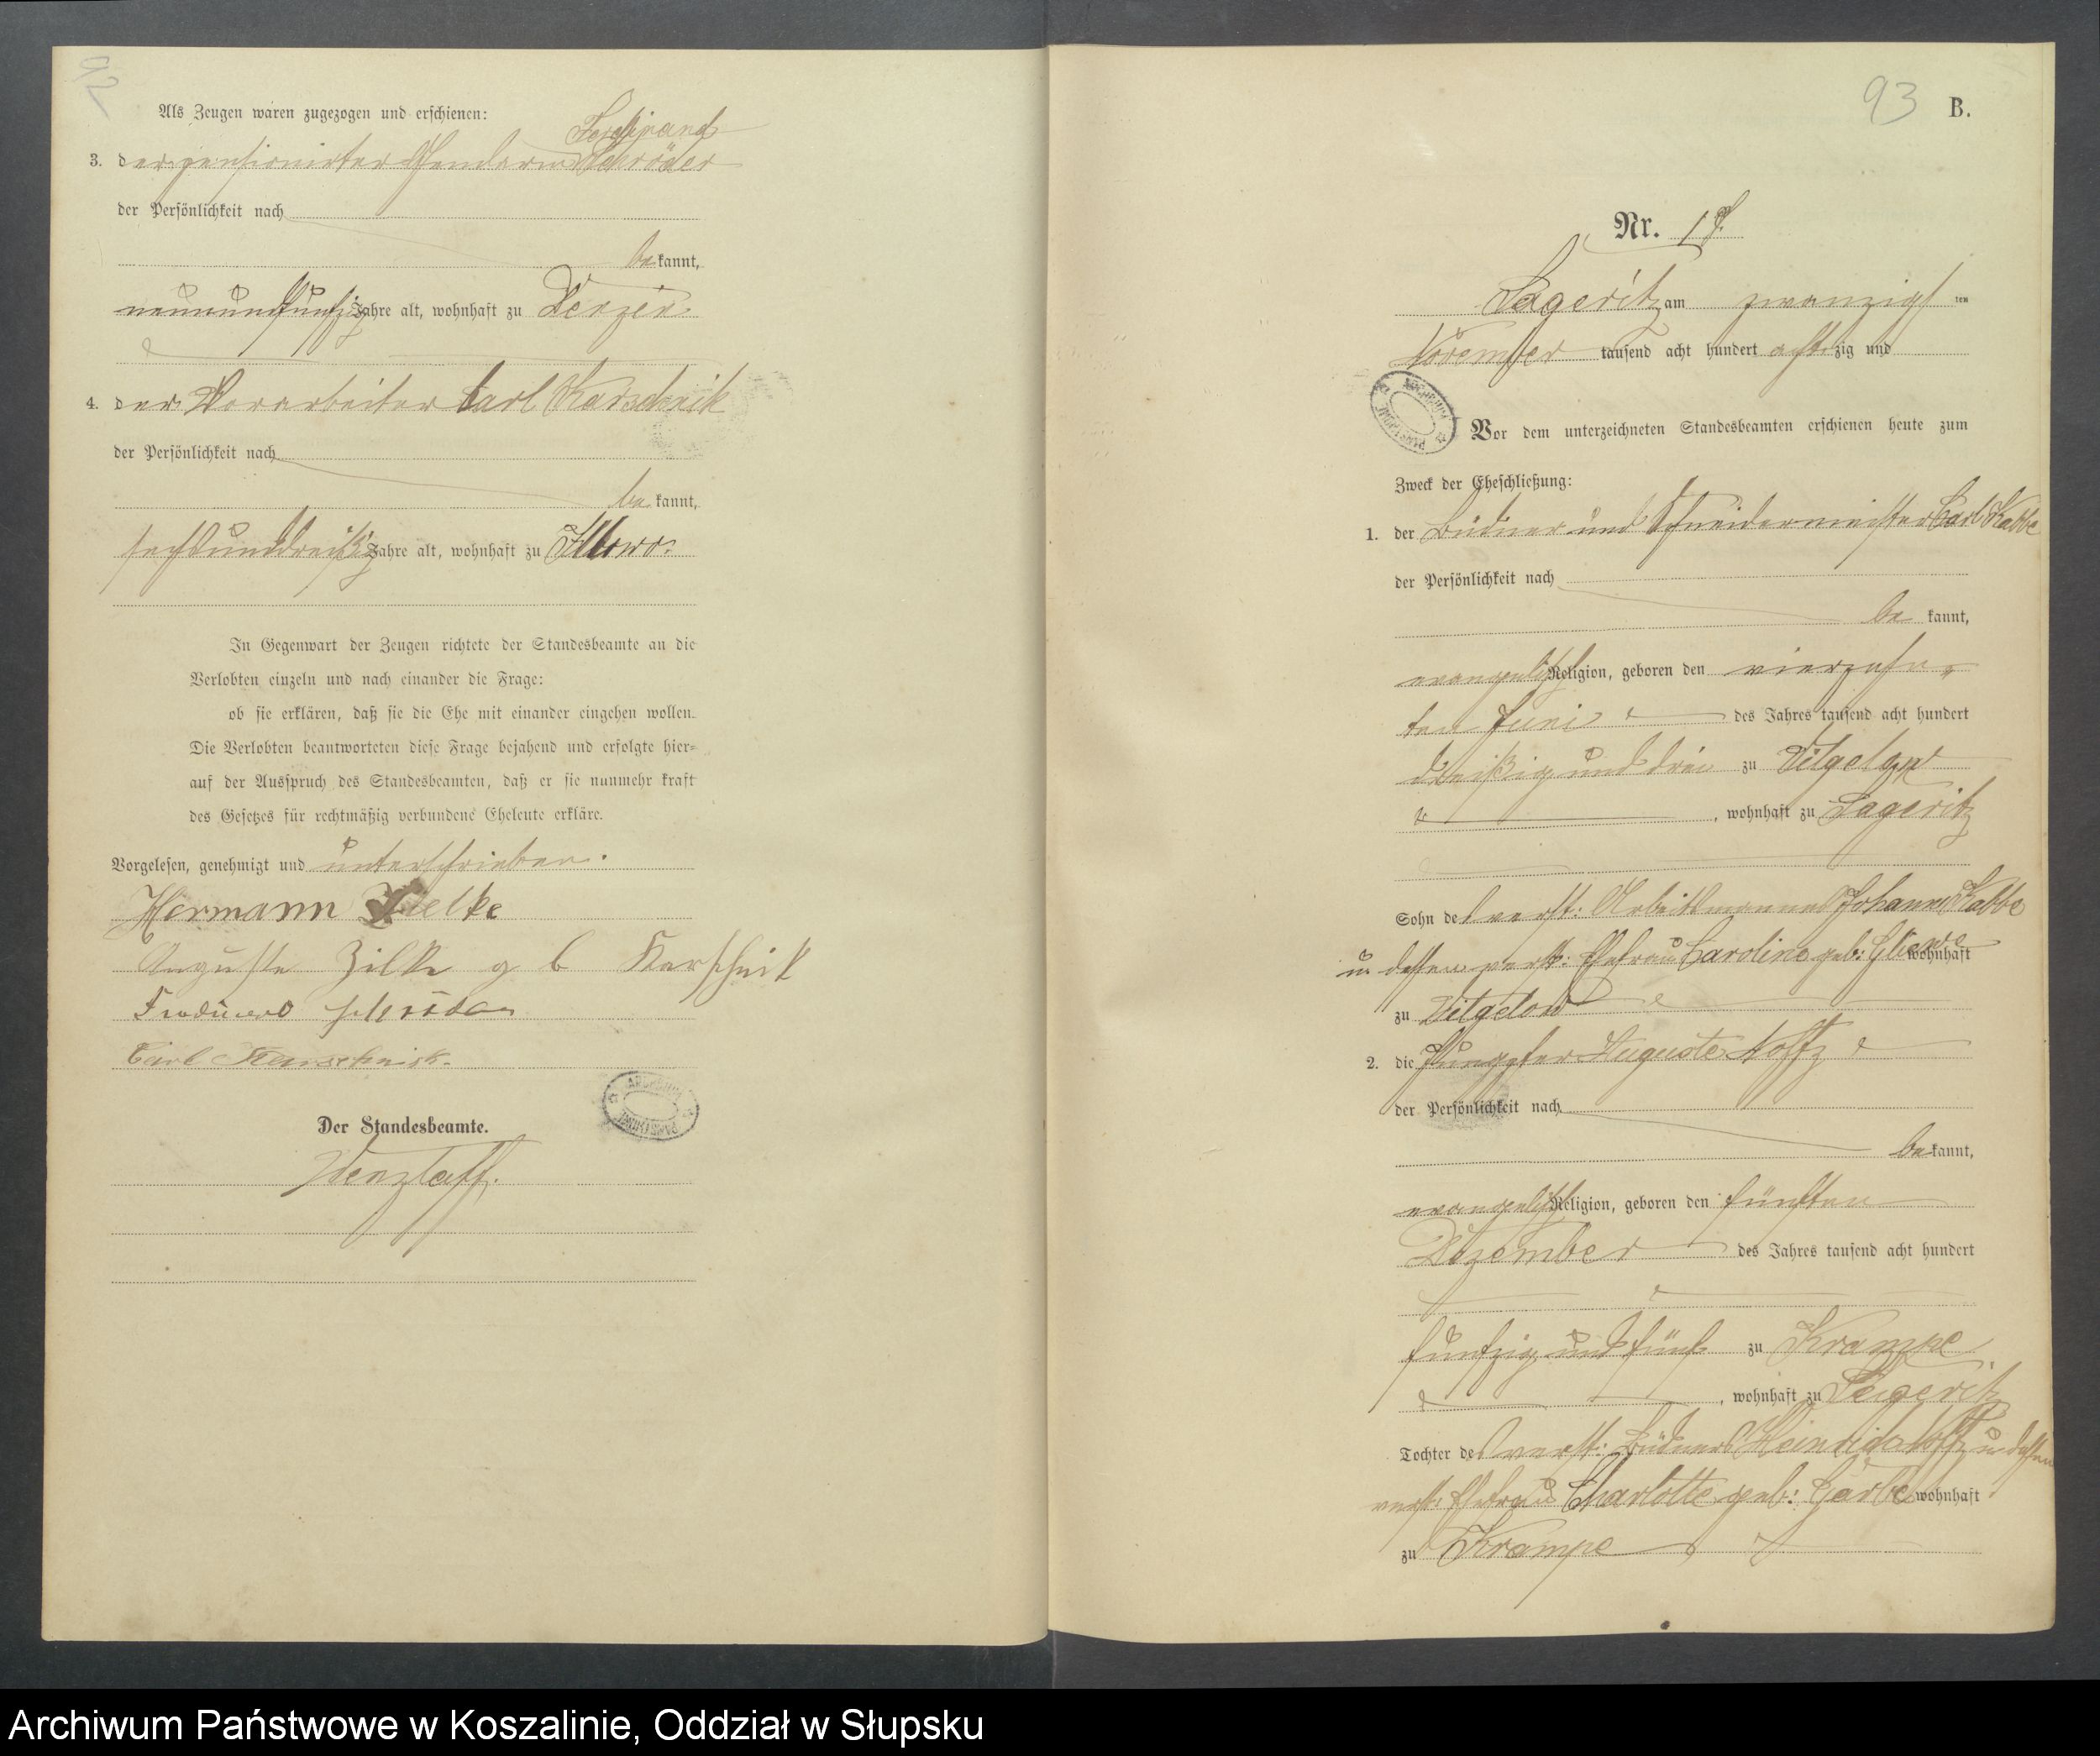 92
Als Zeugen waren zugezogen und erschienen:
Ferdinand
3. der pensionirter Gendarm Schröder
der Persönlichkeit nach
bekannt,
neunundfunfzig Jahre alt, wohnhaft zu Denzin
4. der Vorarbeiter Carl Karschnik
der Persönlichkeit nach
bekannt,
sechsunddreißig Jahre alt, wohnhaft zu
In Gegenwart der Zeugen richtete der Standesbeamte an die
Verlobten einzeln und nach einander die Frage:
ob sie erklären, daß sie die Ehe mit einander eingehen wollen.
Die Verlobten beantworteten diese Frage bejahend und erfolgte hier=
auf der Ausspruch des Standesbeamten, daß er sie nunmehr kraft
des Gesetzes für rechtmäßig verbundene Eheleute erkläre.
Vorgelesen, genehmigt und unterschrieben.
Hermann Zielke
Auguste Zilke g b Karschnik
Carl Karschnik.
Der Standesbeamte.
Wenzlaff.
93
B.
Nr. 17.
Lageritz am zwanzigsten
November tausend acht hundert achtzig und
Vor dem unterzeichneten Standesbeamten erschienen heute zum
Zweck der Eheschließung:
1. der Büdner und Schneidermeister Carl Kabbe
der Persönlichkeit nach
bekannt,
evangelisch Religion, geboren den vierzehn=
ten Juni des Jahres tausend acht hundert
dreißig und drei zu Vitgelow
, wohnhaft zu Lageritz
Sohn des verst: Arbeitsmannes Johann Kabbe
u dessen verst: Ehefrau Caroline geb: Gliewe wohnhaft
zu Vitgelow
2. die Jungfer Auguste Noffz
der Persönlichkeit nach
bekannt,
evangelisch Religion, geboren den fünften
Dezember des Jahres tausend acht hundert
funfzig und fünf zu Krampe
, wohnhaft zu Lageritz
Tochter des verst: Büdners Heinrich Noffz u dessen
verst: Ehefrau Charlotte geb: Garbe wohnhaft
zu Krampe
Archiwum Państwowe w Koszalinie, Oddział w Słupsku